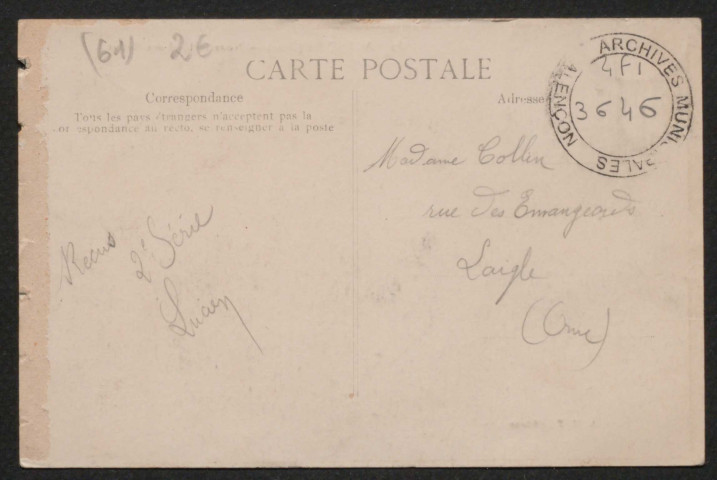 (61) 2€
CARTE POSTALE
Correspondance
Tous les pays étrangers n'acceptent pas la
correspondance au recto, se renseigner à la poste
Adresse
ARCHIVES MUNICIPALES ALENÇON
4FI
3646
Madame Collin
rue des Emangeards
Laigle
(Orne)
Recus
2e Série
Lucien